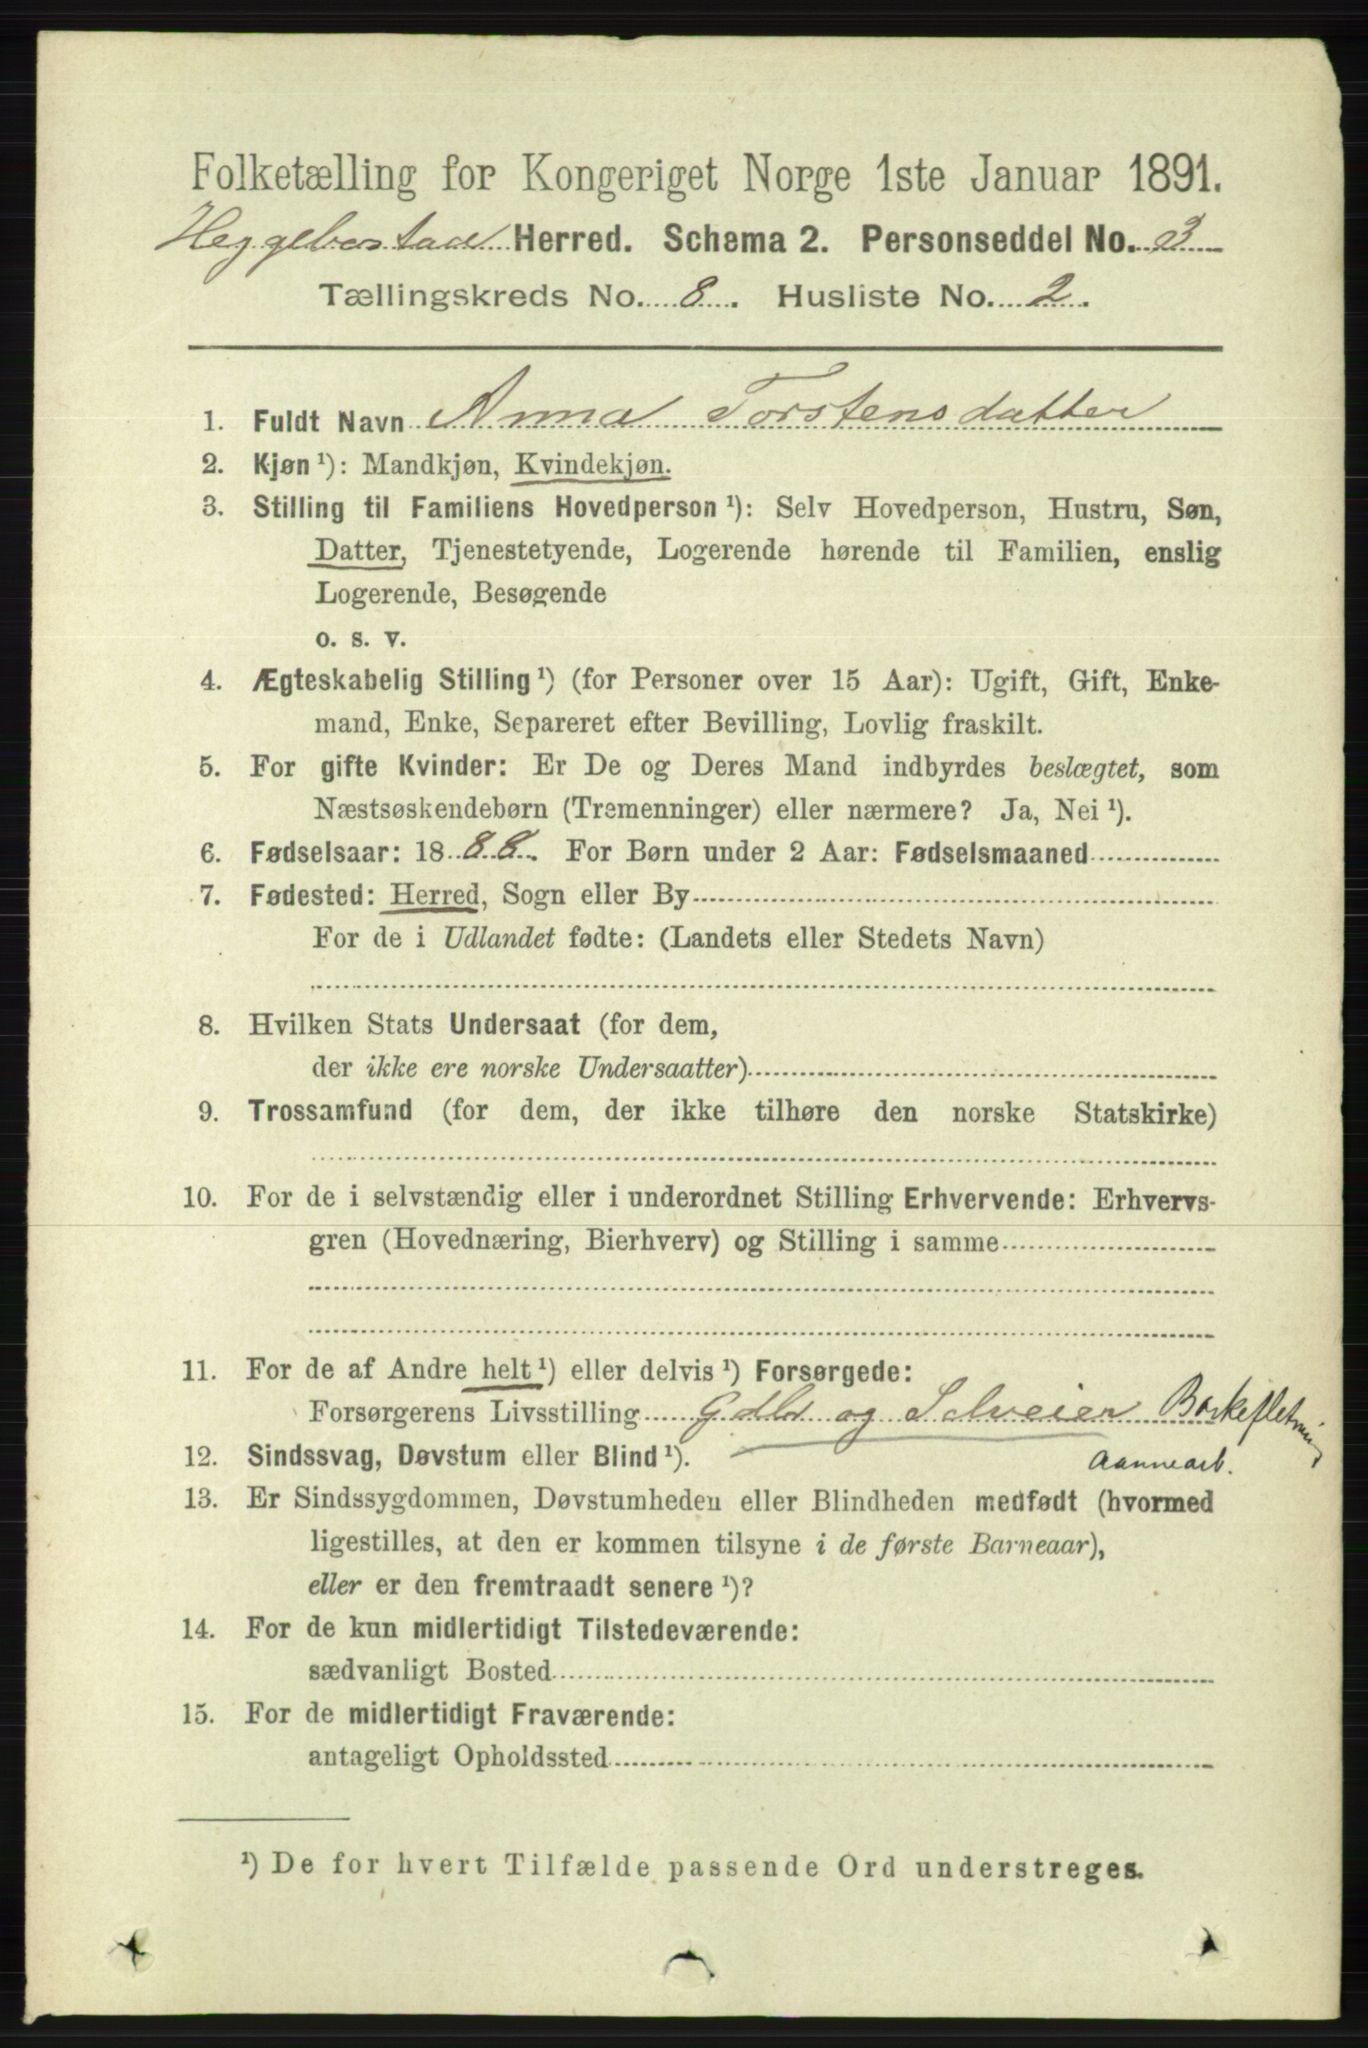 Folketælling for Kongeriget Norge 1ste Januar 1891.
Heggebostad Herred. Schema 2. Personseddel No. 3
Tællingskreds No. 8. Husliste No. 2.
1. Fuldt Navn Anna Torstensdatter
2. Kjøn ¹): Mandkjøn, Kvindekjøn.
3. Stilling til Familiens Hovedperson ¹): Selv Hovedperson, Hustru, Søn,
Datter, Tjenestetyende, Logerende hørende til Familien, enslig
Logerende, Besøgende
o. s. v.
4. Ægteskabelig Stilling ¹) (for Personer over 15 Aar): Ugift, Gift, Enke-
mand, Enke, Separeret efter Bevilling, Lovlig fraskilt.
5. For gifte Kvinder: Er De og Deres Mand indbyrdes beslægtet, som
Næstsøskendebørn (Tremenninger) eller nærmere? Ja, Nei ¹).
6. Fødselsaar: 1888. For Børn under 2 Aar: Fødselsmaaned
7. Fødested: Herred, Sogn eller By
For de i Udlandet fødte: (Landets eller Stedets Navn)
8. Hvilken Stats Undersaat (for dem,
der ikke ere norske Undersaatter)
9. Trossamfund (for dem, der ikke tilhøre den norske Statskirke)
10. For de i selvstændig eller i underordnet Stilling Erhvervende: Erhvervs-
gren (Hovednæring, Bierhverv) og Stilling i samme
11. For de af Andre helt ¹) eller delvis ¹) Forsørgede:
Forsørgerens Livsstilling Gdbr og Selveier Barkefletning
Aannearb.
12. Sindssvag, Døvstum eller Blind ¹).
13. Er Sindssygdommen, Døvstumheden eller Blindheden medfødt (hvormed
ligestilles, at den er kommen tilsyne i de første Barneaar),
eller er den fremtraadt senere ¹)?
14. For de kun midlertidigt Tilstedeværende:
sædvanligt Bosted
15. For de midlertidigt Fraværende:
antageligt Opholdssted
¹) De for hvert Tilfælde passende Ord understreges.